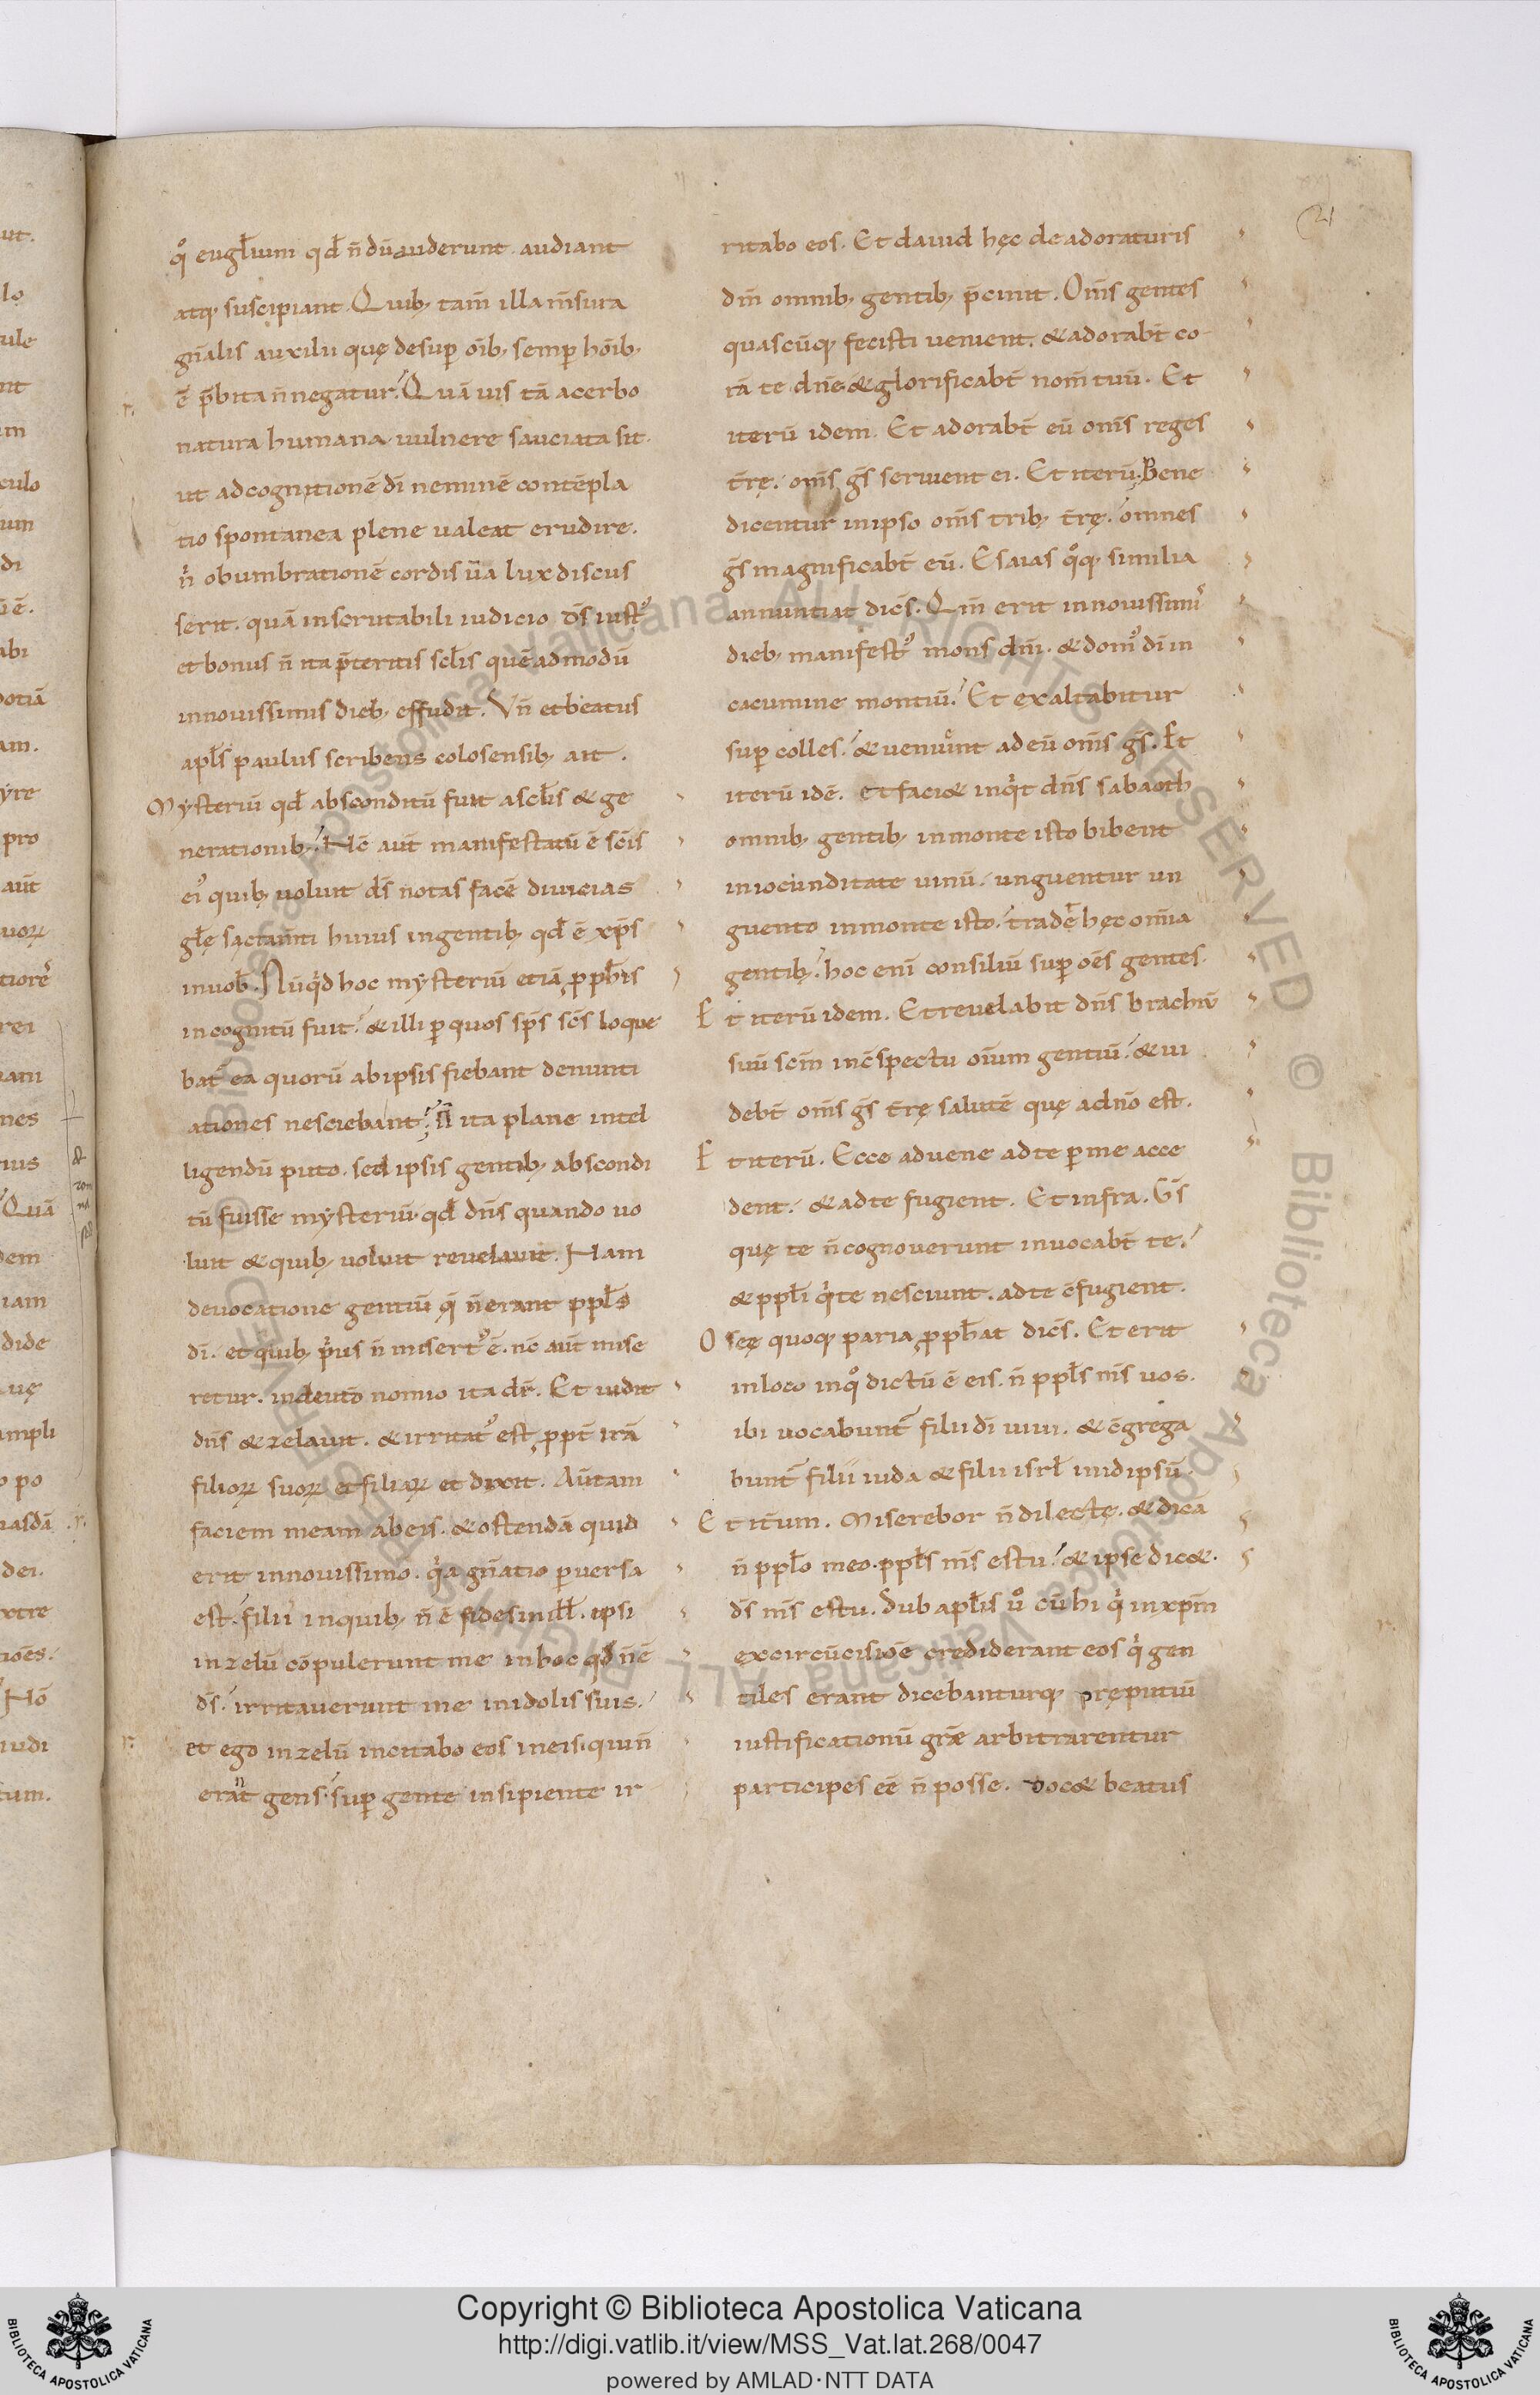 qͦ eugl̄ium qd̄ n̄ dū auderunt. audiant
atq; suscipiant. Quib; tam̄ illa m̄sura
gn̄alis auxilii quę desup̄ oīb; semp̄ hōib;
ē p̄bita n̄ negatur. Quāuis tā acerbo
natura humana uulnere sauciata sit.
ut ad cognitionē dī neminē contēpla
tio spontanea plene ualeat erudire.
obumbrationē cordis ūa lux discus
serit. quā inscrutabili iudicio d̄s iustꝰ
et bonus n̄ ita p̄teritis scl̄is quēadmodū
in nouissimis dieb; effudit. Vn̄ et beatus
apl̄s paulus scribens colosensib; ait.
Mysteriū qd̄ absconditū fuit a scl̄is & ge
nerationib; Nc̄ aut̄ manifestatū ē sc̄is
eiꝰ quib; uoluit d̄s notas facē diuicias
gl̄ę sacram̄ti huius in gentib; qd̄ ē xp̄s
in uob̄. Nūqͥd hoc mysteriū etiā ꝓph̄is
incognitū fuit. & illi ꝑ quos sp̄s sc̄s loque
bat̄ ea quorū ab ipsis fiebant denunti
ationes nesciebant. N̄ ita plane intel
ligendū puto. sed ipsis gentib; abscondi
tū fuisse mysteriū. qd̄ dn̄s quando uo
luit & quib; uoluit reuelauit. Nam
de uocatione gentiū q̄ n̄ erant ppl̄s
dī. et quib; pͥus n̄ misertꝰ ē. nc̄ aut̄ mise
retur. in deut̄o nomio ita dr̄. Et uidit
dn̄s & zelauit. & irritatꝰ est ꝓpt̄ irā
filioꝝ suoꝝ et filiaꝝ et dixit. Aūtam
faciem meam ab eis. & ostendā quid
erit in nouissimo. qͥa gn̄atio ꝑuersa
est. filii in quib; n̄ ē fides in ill̄. ipsi
in zelū cōpulerunt me in hoc qd̄ n̄ ē
d̄s. irritauerunt me in idolis suis.
et ego in zelū incitabo eos in eis. qui n̄
erant gens. sup̄ gente insipiente ir
21
ritabo eos. Et dauid hęc de adoraturis
dm̄ omnib; gentib; p̄cinit. Om̄s gentes
quascūq; fecisti uenient. & adorabt̄ co
rā te dn̄e. & glorificabt̄ nom̄ tuū. Et
iterū idem. Et adorabt̄ eū om̄s reges
t̄rę. om̄s ḡs seruient ei. Et iterū. Bene
dicentur in ipso om̄s trib; t̄rę. omnes
ḡs magnificabt̄ eū. Esaias qͦq; similia
annuntiat dic̄s. Qm̄ erit in nouissimͥs
dieb; manifestꝰ mons dn̄i. & domꝰ dī in
cacumine montiū. Et exaltabitur
sup̄ colles. & uenient ad eū om̄s ḡs. Et
iterū idē. et faci& inqͥt dn̄s sabaoth
omnib; gentib; in monte isto bibent
in iocunditate uinū. unguentur un
guento in monte isto. trade hęc om̄ia
gentib; hoc enī consiliū sup̄ oēs gentes.
Et iterū idem. Et reuelabit dn̄s brachiū
suū scm̄ in c̄spectu oīum gentiū. & ui
debt̄ om̄s ḡs t̄rę salutē quę a dn̄o est.
Et iterū. Ecce aduene ad te ꝑ me acce
dent. & ad te fugient. Et infra. G̅s
quę te n̄ cognouerunt inuocabt̄ te.
& ppl̄i qͥ te nesciunt. ad te c̄fugient.
Oseę quoq; paria ꝓph̄at dic̄s. Et erit
in loco in qͦ dictū ē eis. n̄ ppl̄s m̄s uos.
ibi uocabunt̄ filii dī uiui. & c̄grega
bunt̄ filii iuda & filii isrl̄ in idipsū.
Et it̄um. Miserebor n̄ dilectę. & dicā
n̄ ppl̄o meo. ppl̄s m̄s es tu. & ipse dic&.
d̄s m̄s es tu. Sub apl̄is uͦ cū hi qͥ in xp̄m
ex circūcisiōe crediderant eos qͥ gen
tiles erant dicebanturq; pręputiū
iustificationū grǣ arbitrarentur
participes eē n̄ posse. Doc& beatus
Copyright © Biblioteca Apostolica Vaticana
http://digi.vatlib.it/view/MSS_Vat.lat.268/0047
powered by AMLAD·NTT DATA